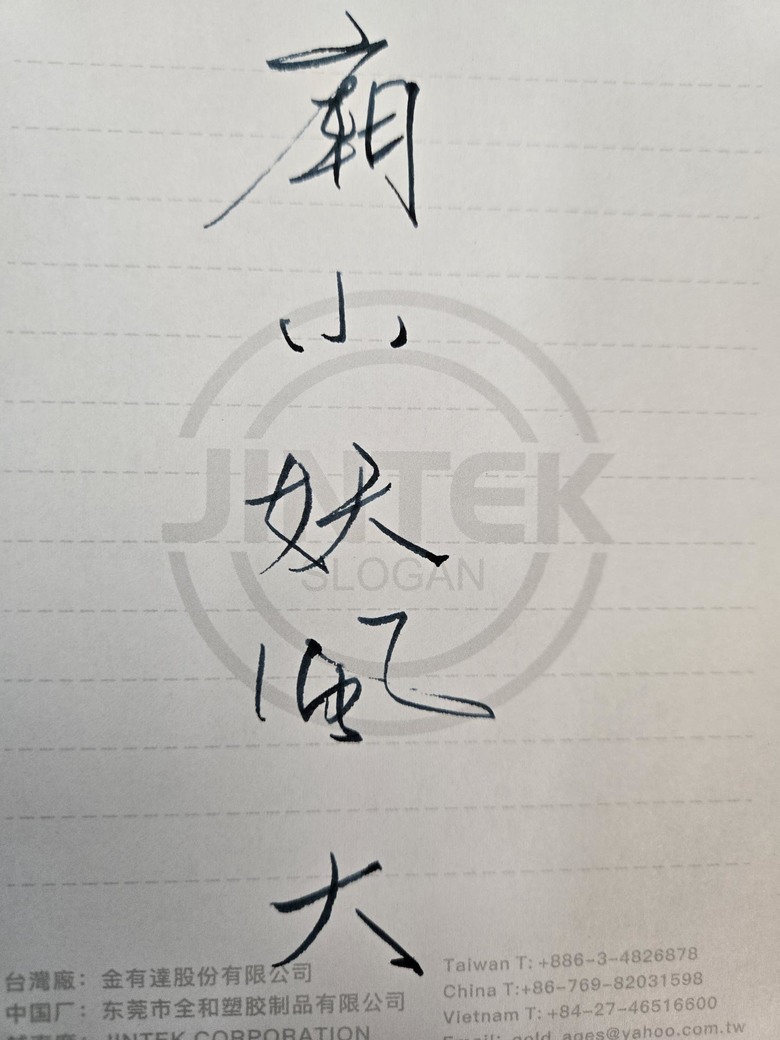 廟小妖風大
JINTEK
SLOGAN
台灣廠：金有達股份有限公司
中国厂：东莞市全和塑胶制品有限公司
越南廠：JINTEK CORPORATION
Taiwan T: +886-3-4826878
China T:+86-769-82031598
Vietnam T: +84-27-46516600
Email: gold_ages@yahoo.com.tw